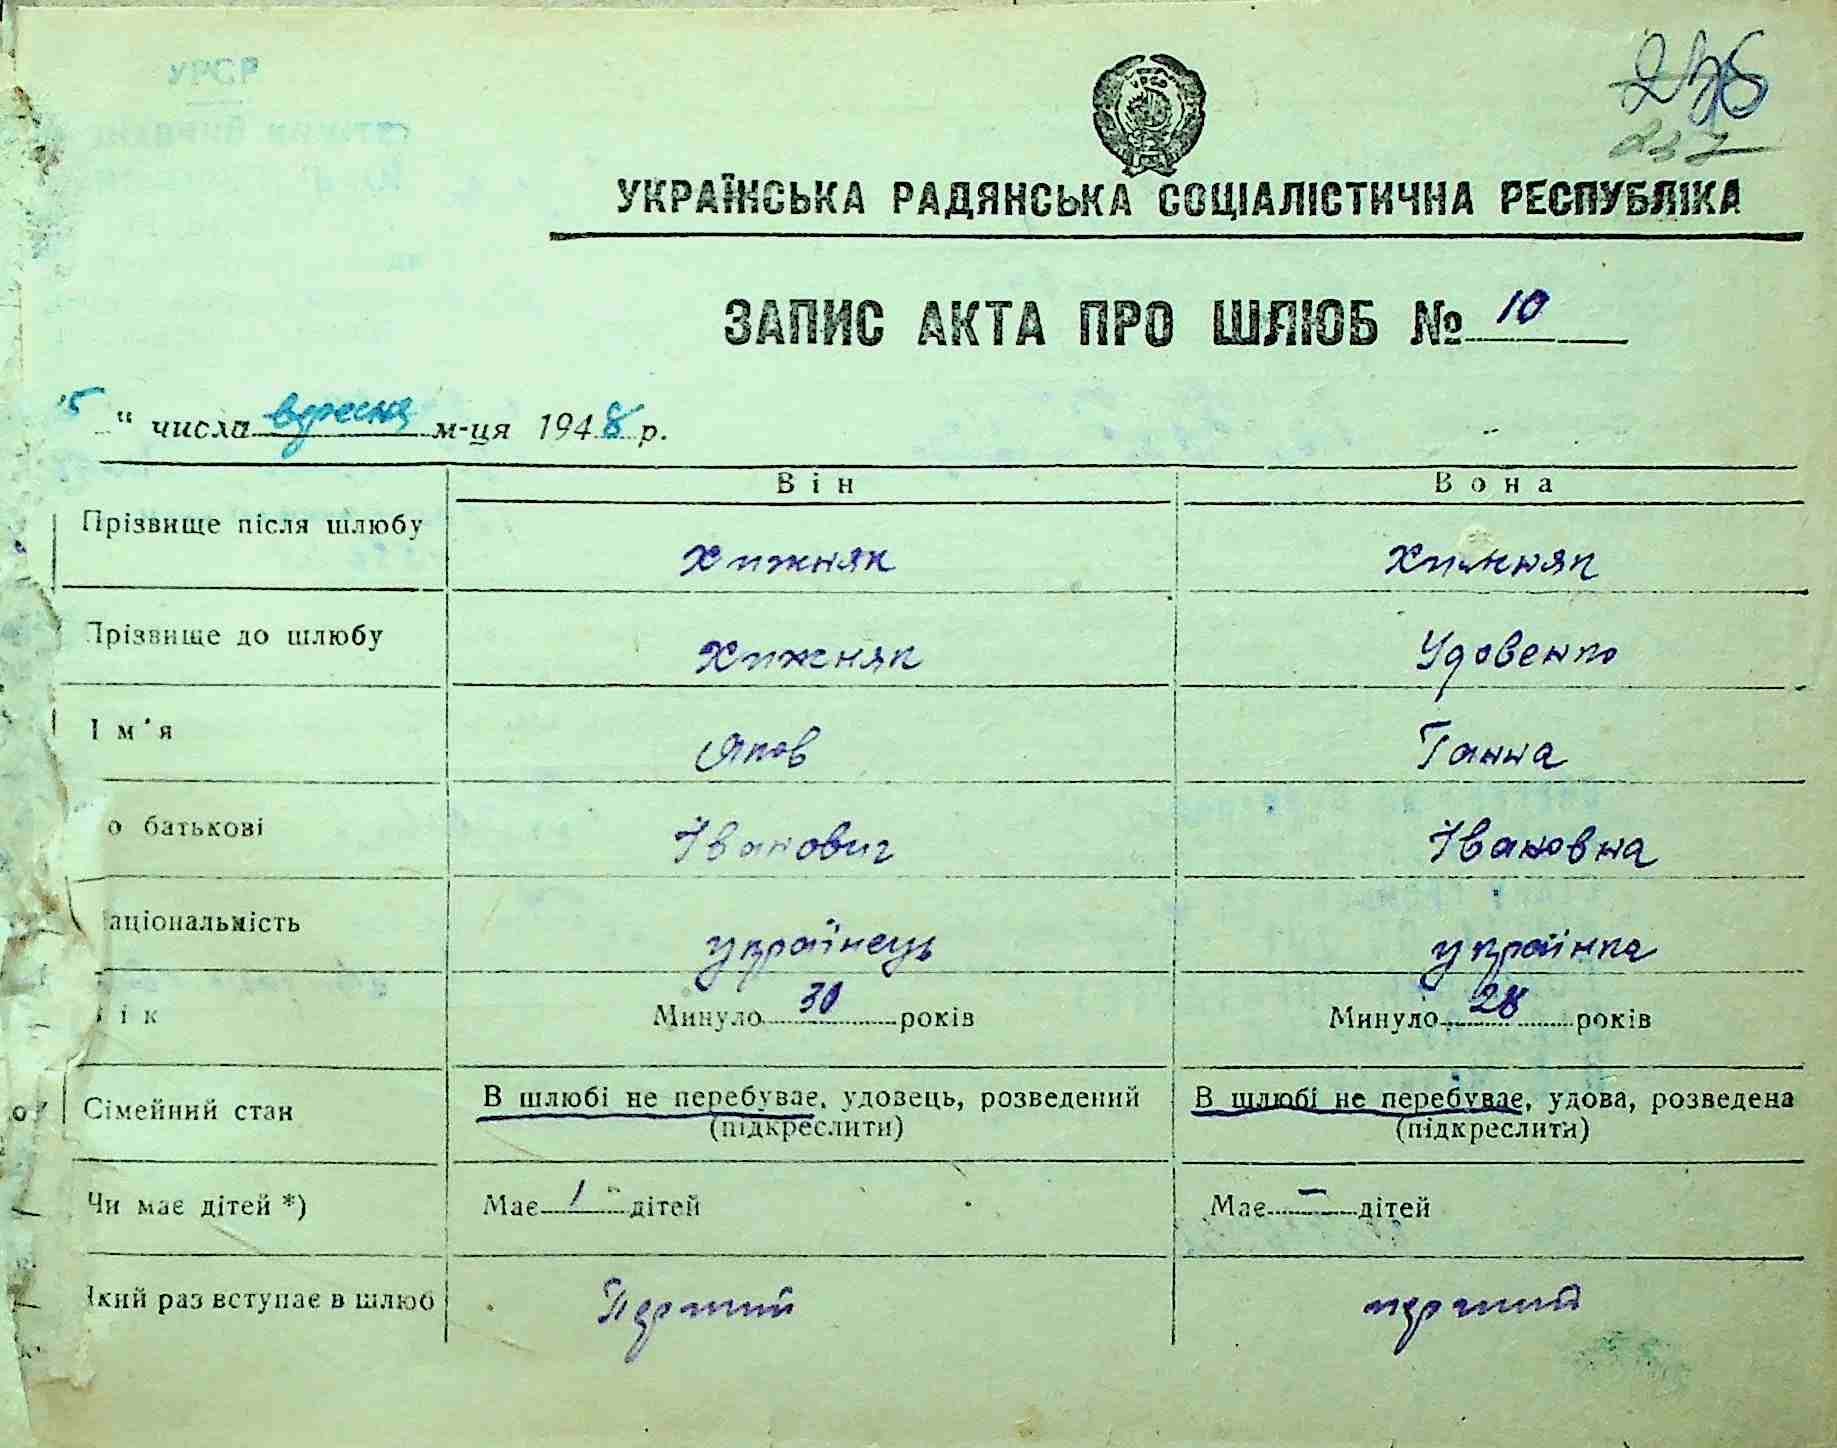 УРСР
236
237
УКРАЇНСЬКА РАДЯНСЬКА СОЦІАЛІСТИЧНА РЕСПУБЛІКА
ЗАПИС АКТА ПРО ШЛЮБ № 10
5 " числа вересня м-ця 1948 р.
Він Вона
Прізвище після шлюбу Хижняк Хижняк
Прізвище до шлюбу Хижняк Удовенко
Ім'я Яков Ганна
о батькові Іванович Івановна
аціональність українець українка
ік Минуло 30 років Минуло 28 років
Сімейний стан В шлюбі не перебуває, удовець, розведений В шлюбі не перебуває, удова, розведена
(підкреслити) (підкреслити)
Чи має дітей *) Має 1 дітей Має — дітей
Який раз вступає в шлюб Перший перший